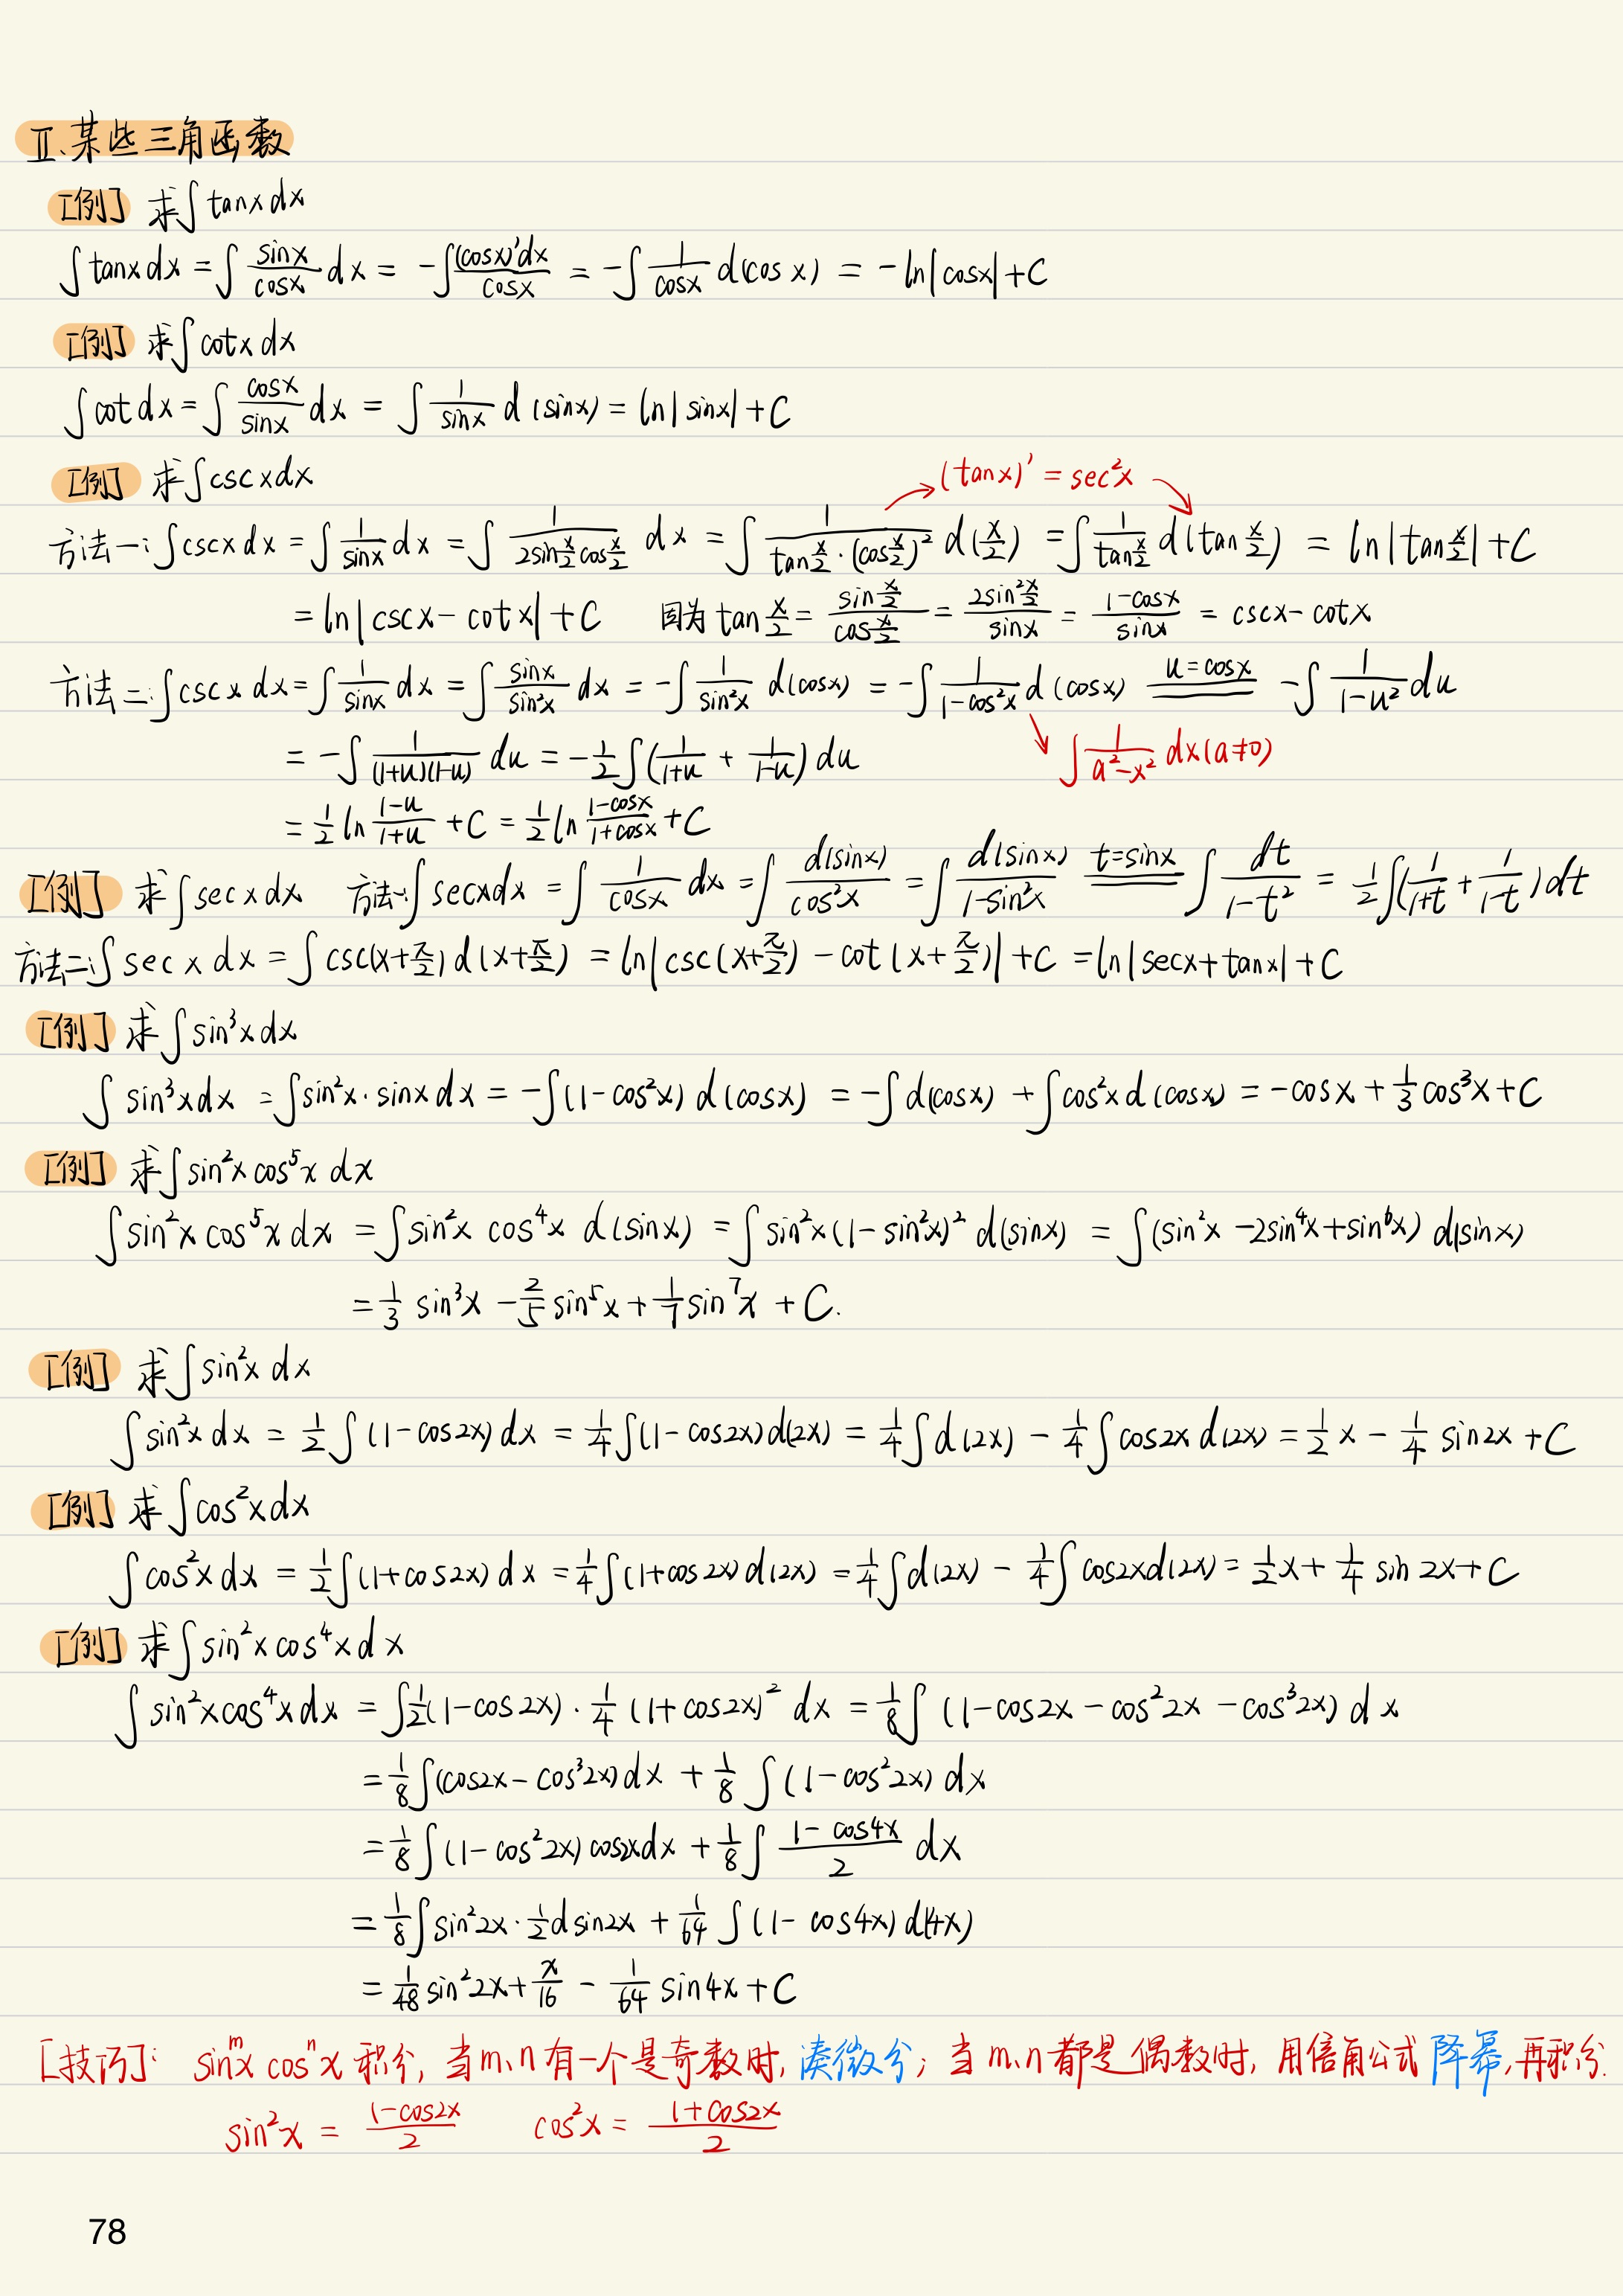 Ⅱ.某些三角函数
[例] 求∫tanx dx
∫tanx dx = ∫ sinx/cosx dx = -∫ (cosx)'dx/cosx = -∫ 1/cosx d(cos x) = -ln|cosx|+C
[例] 求∫cotx dx
∫cot dx = ∫ cosx/sinx dx = ∫ 1/sinx d(sinx) = ln|sinx|+C
[例] 求∫cscxdx
(tanx)' = sec²x
方法一: ∫cscx dx = ∫ 1/sinx dx = ∫ 1/(2sin x/2 cos x/2) dx = ∫ 1/(tan x/2 · (cos x/2)²) d(x/2) = ∫ 1/(tan x/2) d(tan x/2) = ln|tan x/2|+C
= ln|cscx - cotx|+C 因为 tan x/2 = (sin x/2)/(cos x/2) = (2sin² x/2)/sinx = (1-cosx)/sinx = cscx - cotx
方法二: ∫cscx dx = ∫ 1/sinx dx = ∫ sinx/sin²x dx = -∫ 1/sin²x d(cosx) = -∫ 1/(1-cos²x) d(cosx) u=cosx -∫ 1/(1-u²) du
= -∫ 1/((1+u)(1-u)) du = -1/2 ∫(1/(1+u) + 1/(1-u)) du
∫ 1/(a²-x²) dx (a≠0)
= 1/2 ln (1-u)/(1+u) + C = 1/2 ln (1-cosx)/(1+cosx) + C
[例] 求∫secxdx 方法一: ∫secxdx = ∫ 1/cosx dx = ∫ d(sinx)/cos²x = ∫ d(sinx)/(1-sin²x) t=sinx ∫ dt/(1-t²) = 1/2 ∫(1/(1+t) + 1/(1-t)) dt
方法二: ∫sec x dx = ∫csc(x+π/2) d(x+π/2) = ln|csc(x+π/2) - cot(x+π/2)|+C = ln|secx+tanx|+C
[例] 求∫sin³x dx
∫sin³xdx = ∫sin²x·sinx dx = -∫(1-cos²x) d(cosx) = -∫d(cosx) + ∫cos²x d(cosx) = -cosx + 1/3 cos³x + C
[例] 求∫sin²x cos⁵x dx
∫sin²x cos⁵x dx = ∫sin²x cos⁴x d(sinx) = ∫sin²x(1-sin²x)² d(sinx) = ∫(sin²x - 2sin⁴x + sin⁶x) d(sinx)
= 1/3 sin³x - 2/5 sin⁵x + 1/7 sin⁷x + C.
[例] 求∫sin²x dx
∫sin²x dx = 1/2 ∫(1-cos2x) dx = 1/4 ∫(1-cos2x)d(2x) = 1/4 ∫d(2x) - 1/4 ∫cos2x d(2x) = 1/2 x - 1/4 sin2x + C
[例] 求∫cos²xdx
∫cos²x dx = 1/2 ∫(1+cos2x) dx = 1/4 ∫(1+cos2x) d(2x) = 1/4 ∫d(2x) - 1/4 ∫cos2xd(2x) = 1/2 x + 1/4 sin 2x + C
[例] 求∫sin²x cos⁴x dx
∫sin²xcos⁴x dx = ∫1/2(1-cos2x)·1/4(1+cos2x)² dx = 1/8 ∫(1-cos2x-cos²2x-cos³2x) dx
= 1/8 ∫(cos2x-cos³2x)dx + 1/8 ∫(1-cos²2x) dx
= 1/8 ∫(1-cos²2x) cos2xdx + 1/8 ∫ (1-cos4x)/2 dx
= 1/8 ∫sin²2x·1/2 d sin2x + 1/64 ∫(1-cos4x) d(4x)
= 1/48 sin²2x + x/16 - 1/64 sin4x + C
[技巧]: sinᵐx cosⁿx 积分, 当m、n有一个是奇数时, 凑微分; 当m、n都是偶数时, 用倍角公式降幂,再积分.
sin²x = (1-cos2x)/2 cos²x = (1+cos2x)/2
78